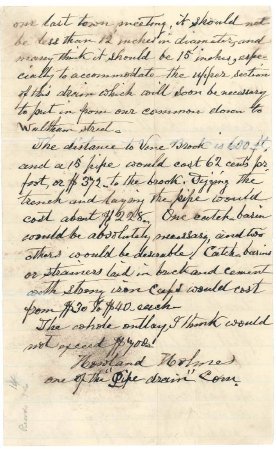 our last town meeting, it should not
be less than 12 inches in diameter, and
many think it should be 15 inches, espe-
cially to accommodate the upper section
of this drain which will soon be necessary
to put in from our common down to
Waltham street.
The distance to Vine Brook is 600 ft,
and a 15 pipe would cost 62 cents pr
foot, or $372 to the brook. Digging the
trench and laying the pipe would
cost about $228. One catch basin
would be absolutely necessary, and two
others would be desirable. Catch basins
or strainers laid in brick and cement
with strong iron caps would cost
from $30 to $40 each.
The whole outlay I think would
not exceed $700.
Howland Holmes
one of the "Pipe drain" Com.